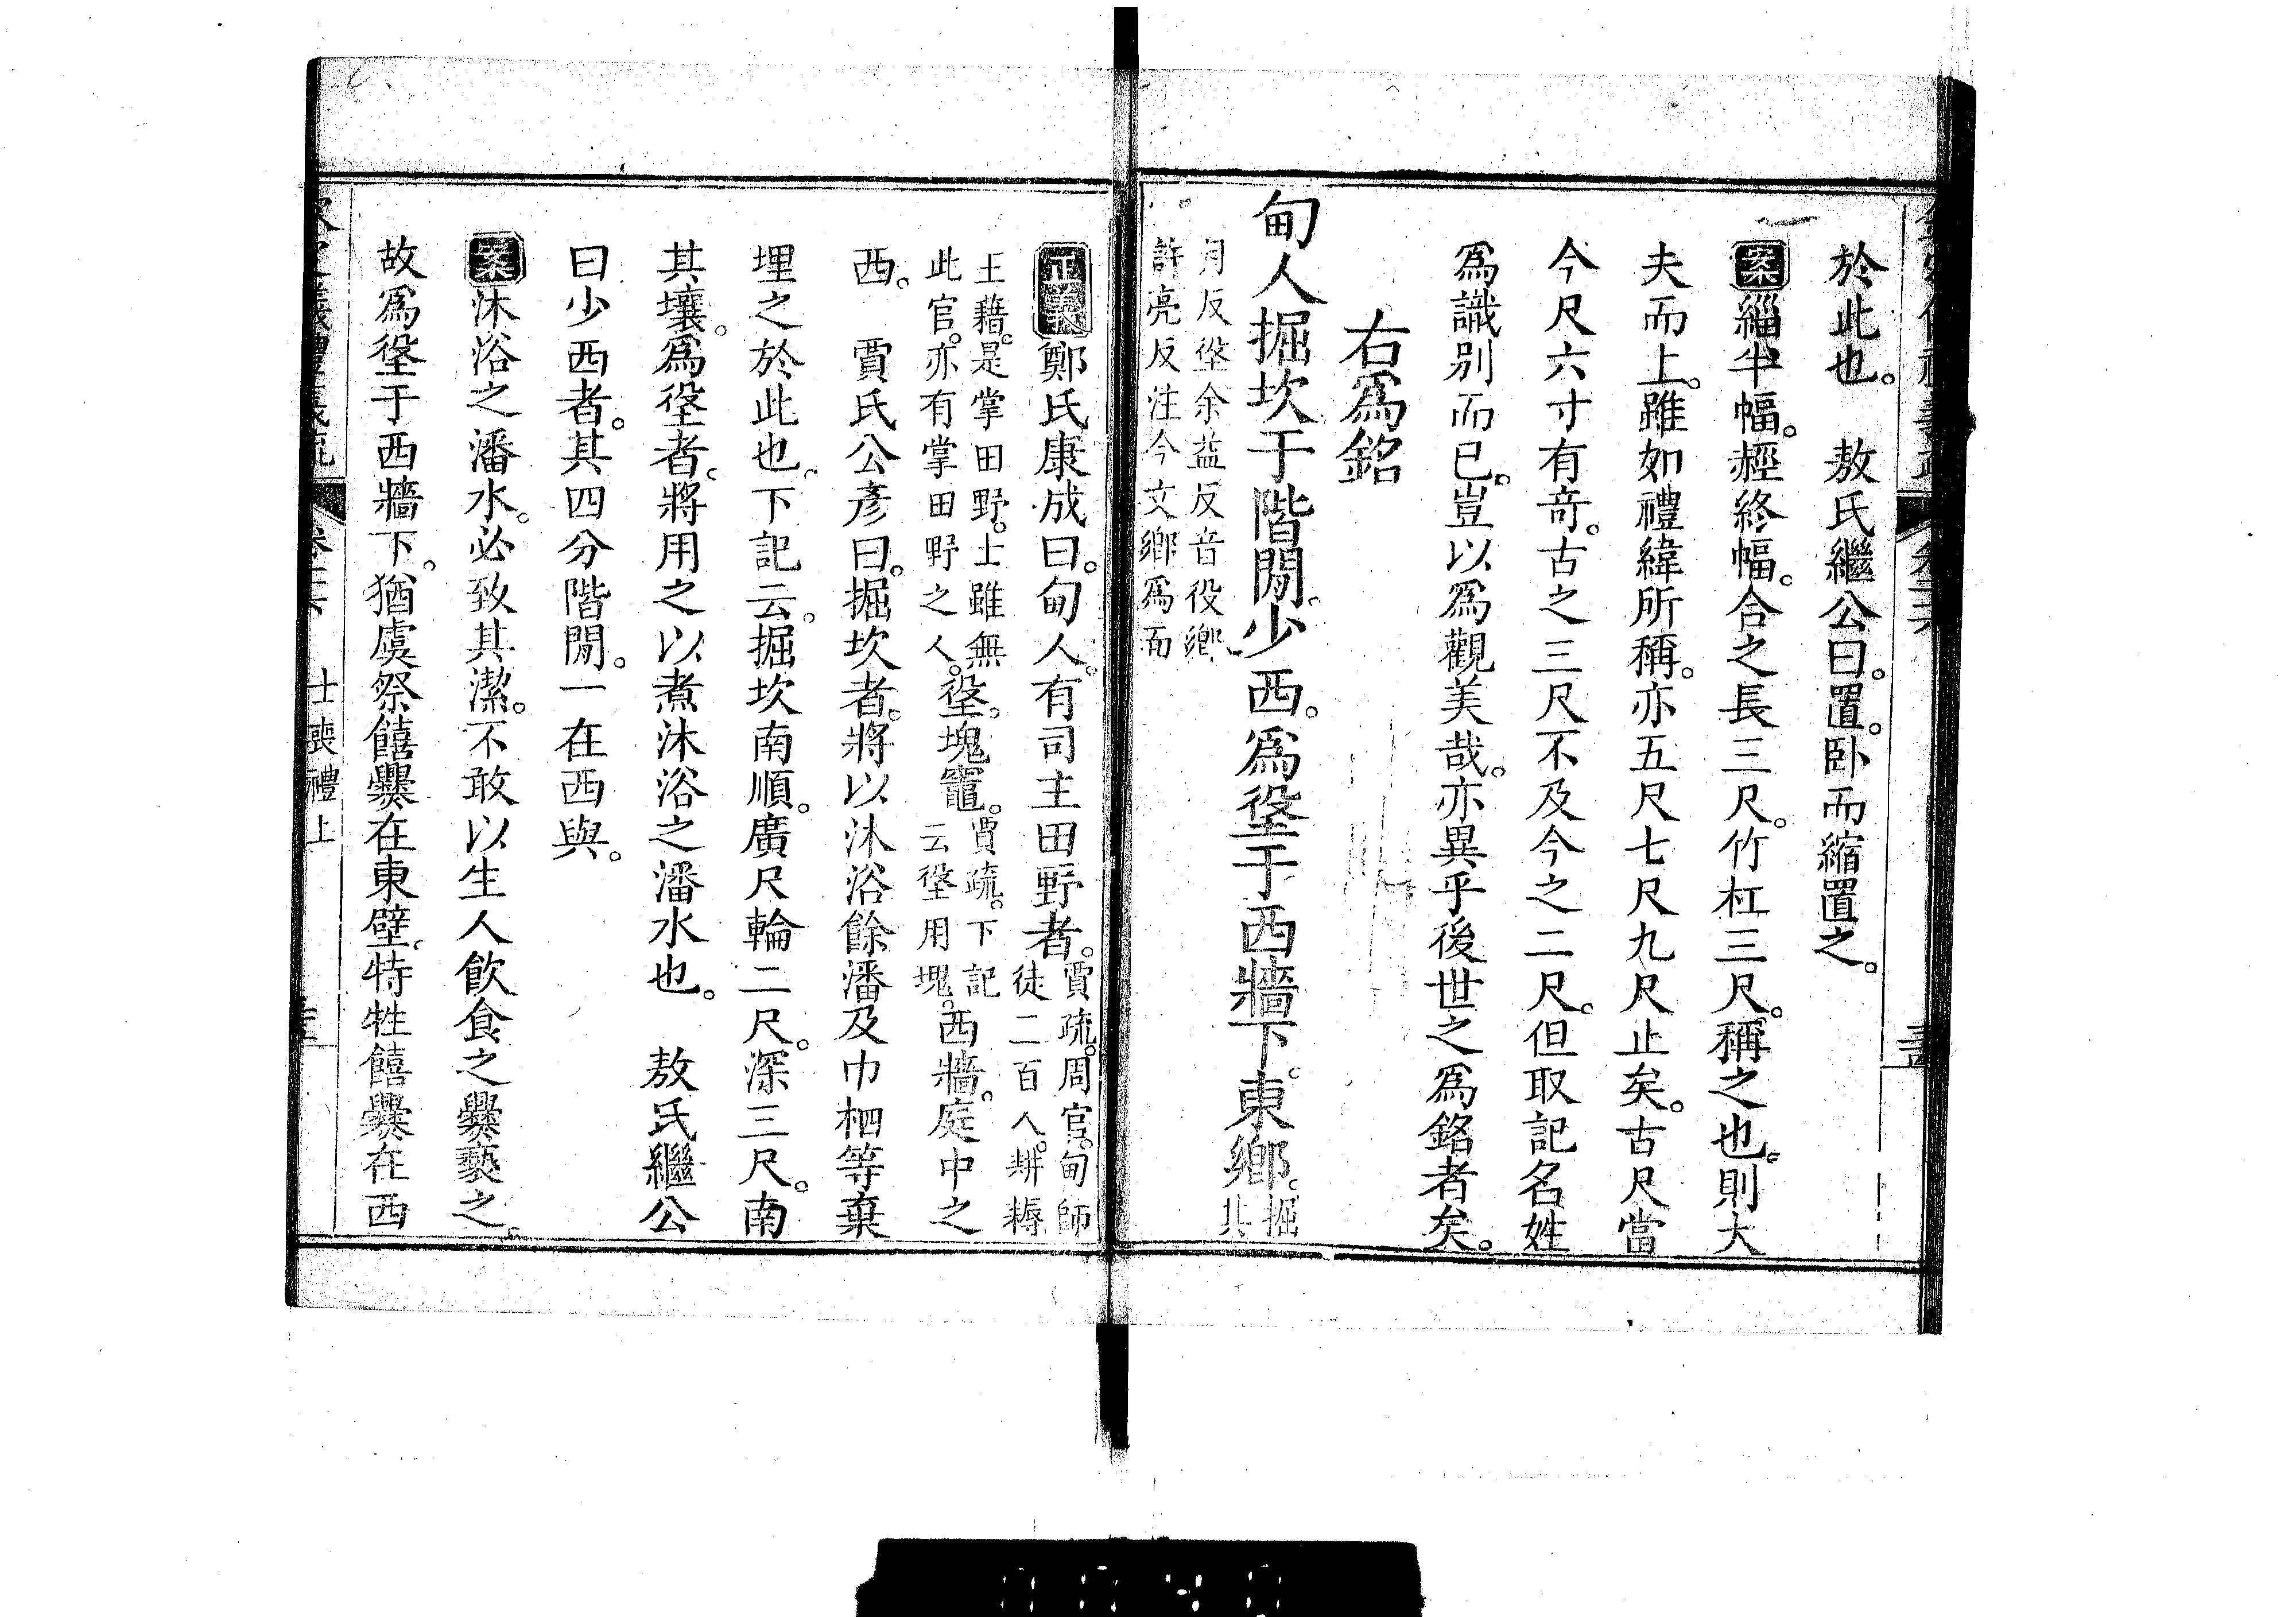 於此也。　敖氏繼公曰。置。卧而縮置之。
案緇半幅。赬終幅。合之長三尺。竹杠三尺。稱之也。則大
夫而上。雖如禮緯所稱。亦五尺七尺九尺止矣。古尺當
今尺六寸有奇。古之三尺不及今之二尺。但取記名姓
爲識别而已。豈以爲觀美哉。亦異乎後世之爲銘者矣。
右爲銘
甸人掘坎于階閒。少西。爲垼于西牆下。東鄉。掘其
月反垼余益反音役鄉
許亮反注今文鄉爲面
正義鄭氏康成曰。甸人。有司主田野者。賈疏。周官。甸師
徒二百人。耕耨
王藉。是掌田野。士雖無
此官。亦有掌田野之人。垼。塊竈。賈疏。下記
云垼用塊。西牆。庭中之
西。　賈氏公彥曰。掘坎者。將以沐浴餘潘及巾柶等棄
埋之於此也。下記云。掘坎南順。廣尺輪二尺。深三尺。南
其壤。爲垼者。將用之以煮沐浴之潘水也。　敖氏繼公
曰少西者。其四分階閒。一在西與。
案沐浴之潘水。必致其潔。不敢以生人飲食之爨褻之。
故爲垼于西牆下。猶虞祭饎爨在東壁。特牲饎爨在西
士喪禮上